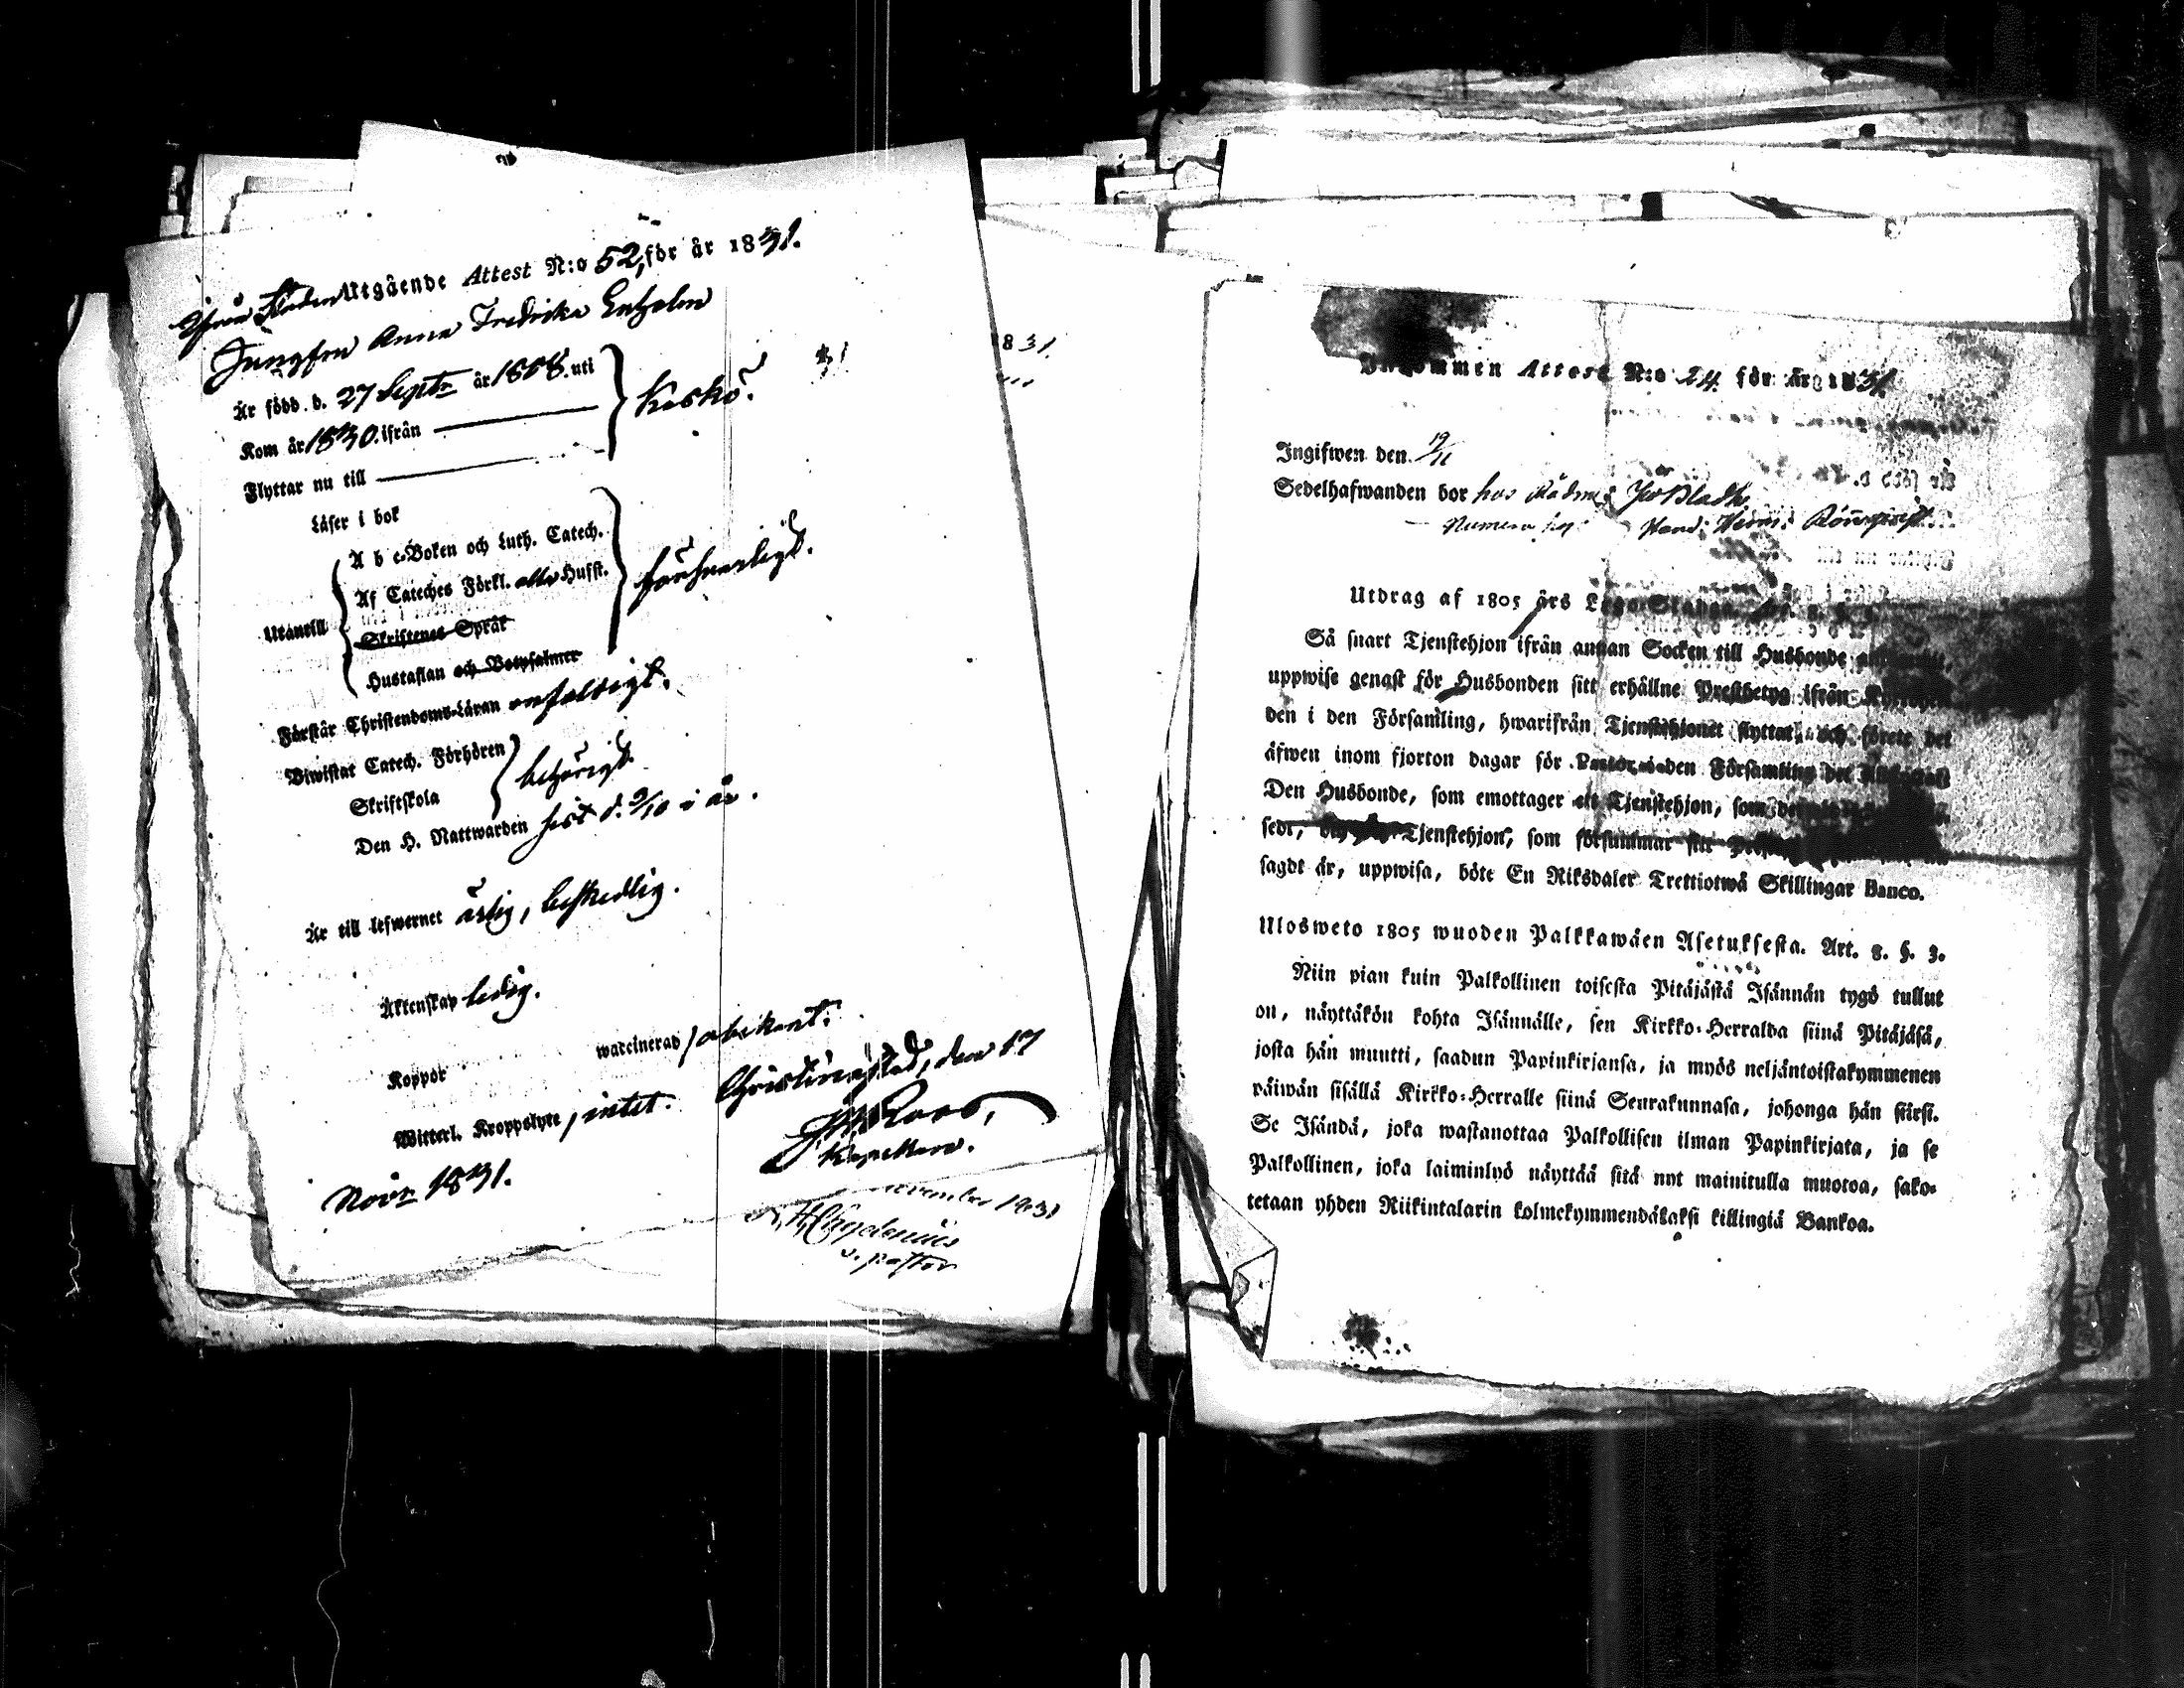 Ifrån Staden Utgående Attest N:o 52, för år 1831.
Jungfru Anna Fredrika Enholm
Är född d. 27 Septr år 1808. uti
Kom år 1830. ifrån
Kaskö.
Flyttar nu till
Läser i bok
A b c-Boken och Luth. Catech.
Af Cateches Förkl. alla Hufst.
Utantill
försvarligt.
Skriftenes Språk
Hustaflan och Botpsalmer
Förstår Christendoms-Läran enfaldigt.
Biwistat Catech. Förhören
behörigt.
Skriftskola
Den H. Nattwarden sist d. 9/10 i år.
Är till lefwernet ärlig, beskedlig.
Äktenskap ledig.
Koppor
waccinerad, obekant.
Witterl. Kroppslyte, intet.
Christinestad, den 17
Novr 1831.
Roos,
Kapellan.
1831
vember 1831
v. pastor
Inkommen Attest N:o 24. för år 1831.
Ingifwen den 19/11
Sedelhafwanden bor hos Rådm: Bladh
Numera hos Hand:
Utdrag af 1805 års Lego-Stadga
Så snart Tjenstehjon ifrån annan Socken till Husbonde
uppwise genast för Husbonden sitt erhållne Prestbetyg ifrån
den i den Församling, hwarifrån Tjenstehjonet flyttat, och förete det
äfwen inom fjorton dagar för den Församling det
Den Husbonde, som emottager ett Tjenstehjon, som
sedt, Tjenstehjon, som försummar sitt
sagdt är, uppwisa, böte En Riksdaler Trettiotwå Skillingar Banco.
Ulosweto 1805 wuoden Palkkawäen Asetuksesta. Art. 8. §. 3.
Niin pian kuin Palkollinen toisesta Pitäjästä Isännän tygö tullut
on, näyttäkön kohta Isännälle, sen Kirkko-Herralda siinä Pitäjäsä,
josta hän muutti, saadun Papinkirjansa, ja myös neljäntoistakymmenen
päiwän sisällä Kirkko-Herralle siinä Seurakunnasa, johonga hän siirsi.
Se Isändä, joka wastanottaa Palkollisen ilman Papinkirjata, ja se
Palkollinen, joka laiminlyö näyttää sitä nyt mainitulla muotoa, sako-
tetaan yhden Riikintalarin kolmekymmendäkaksi killingiä Bankoa.